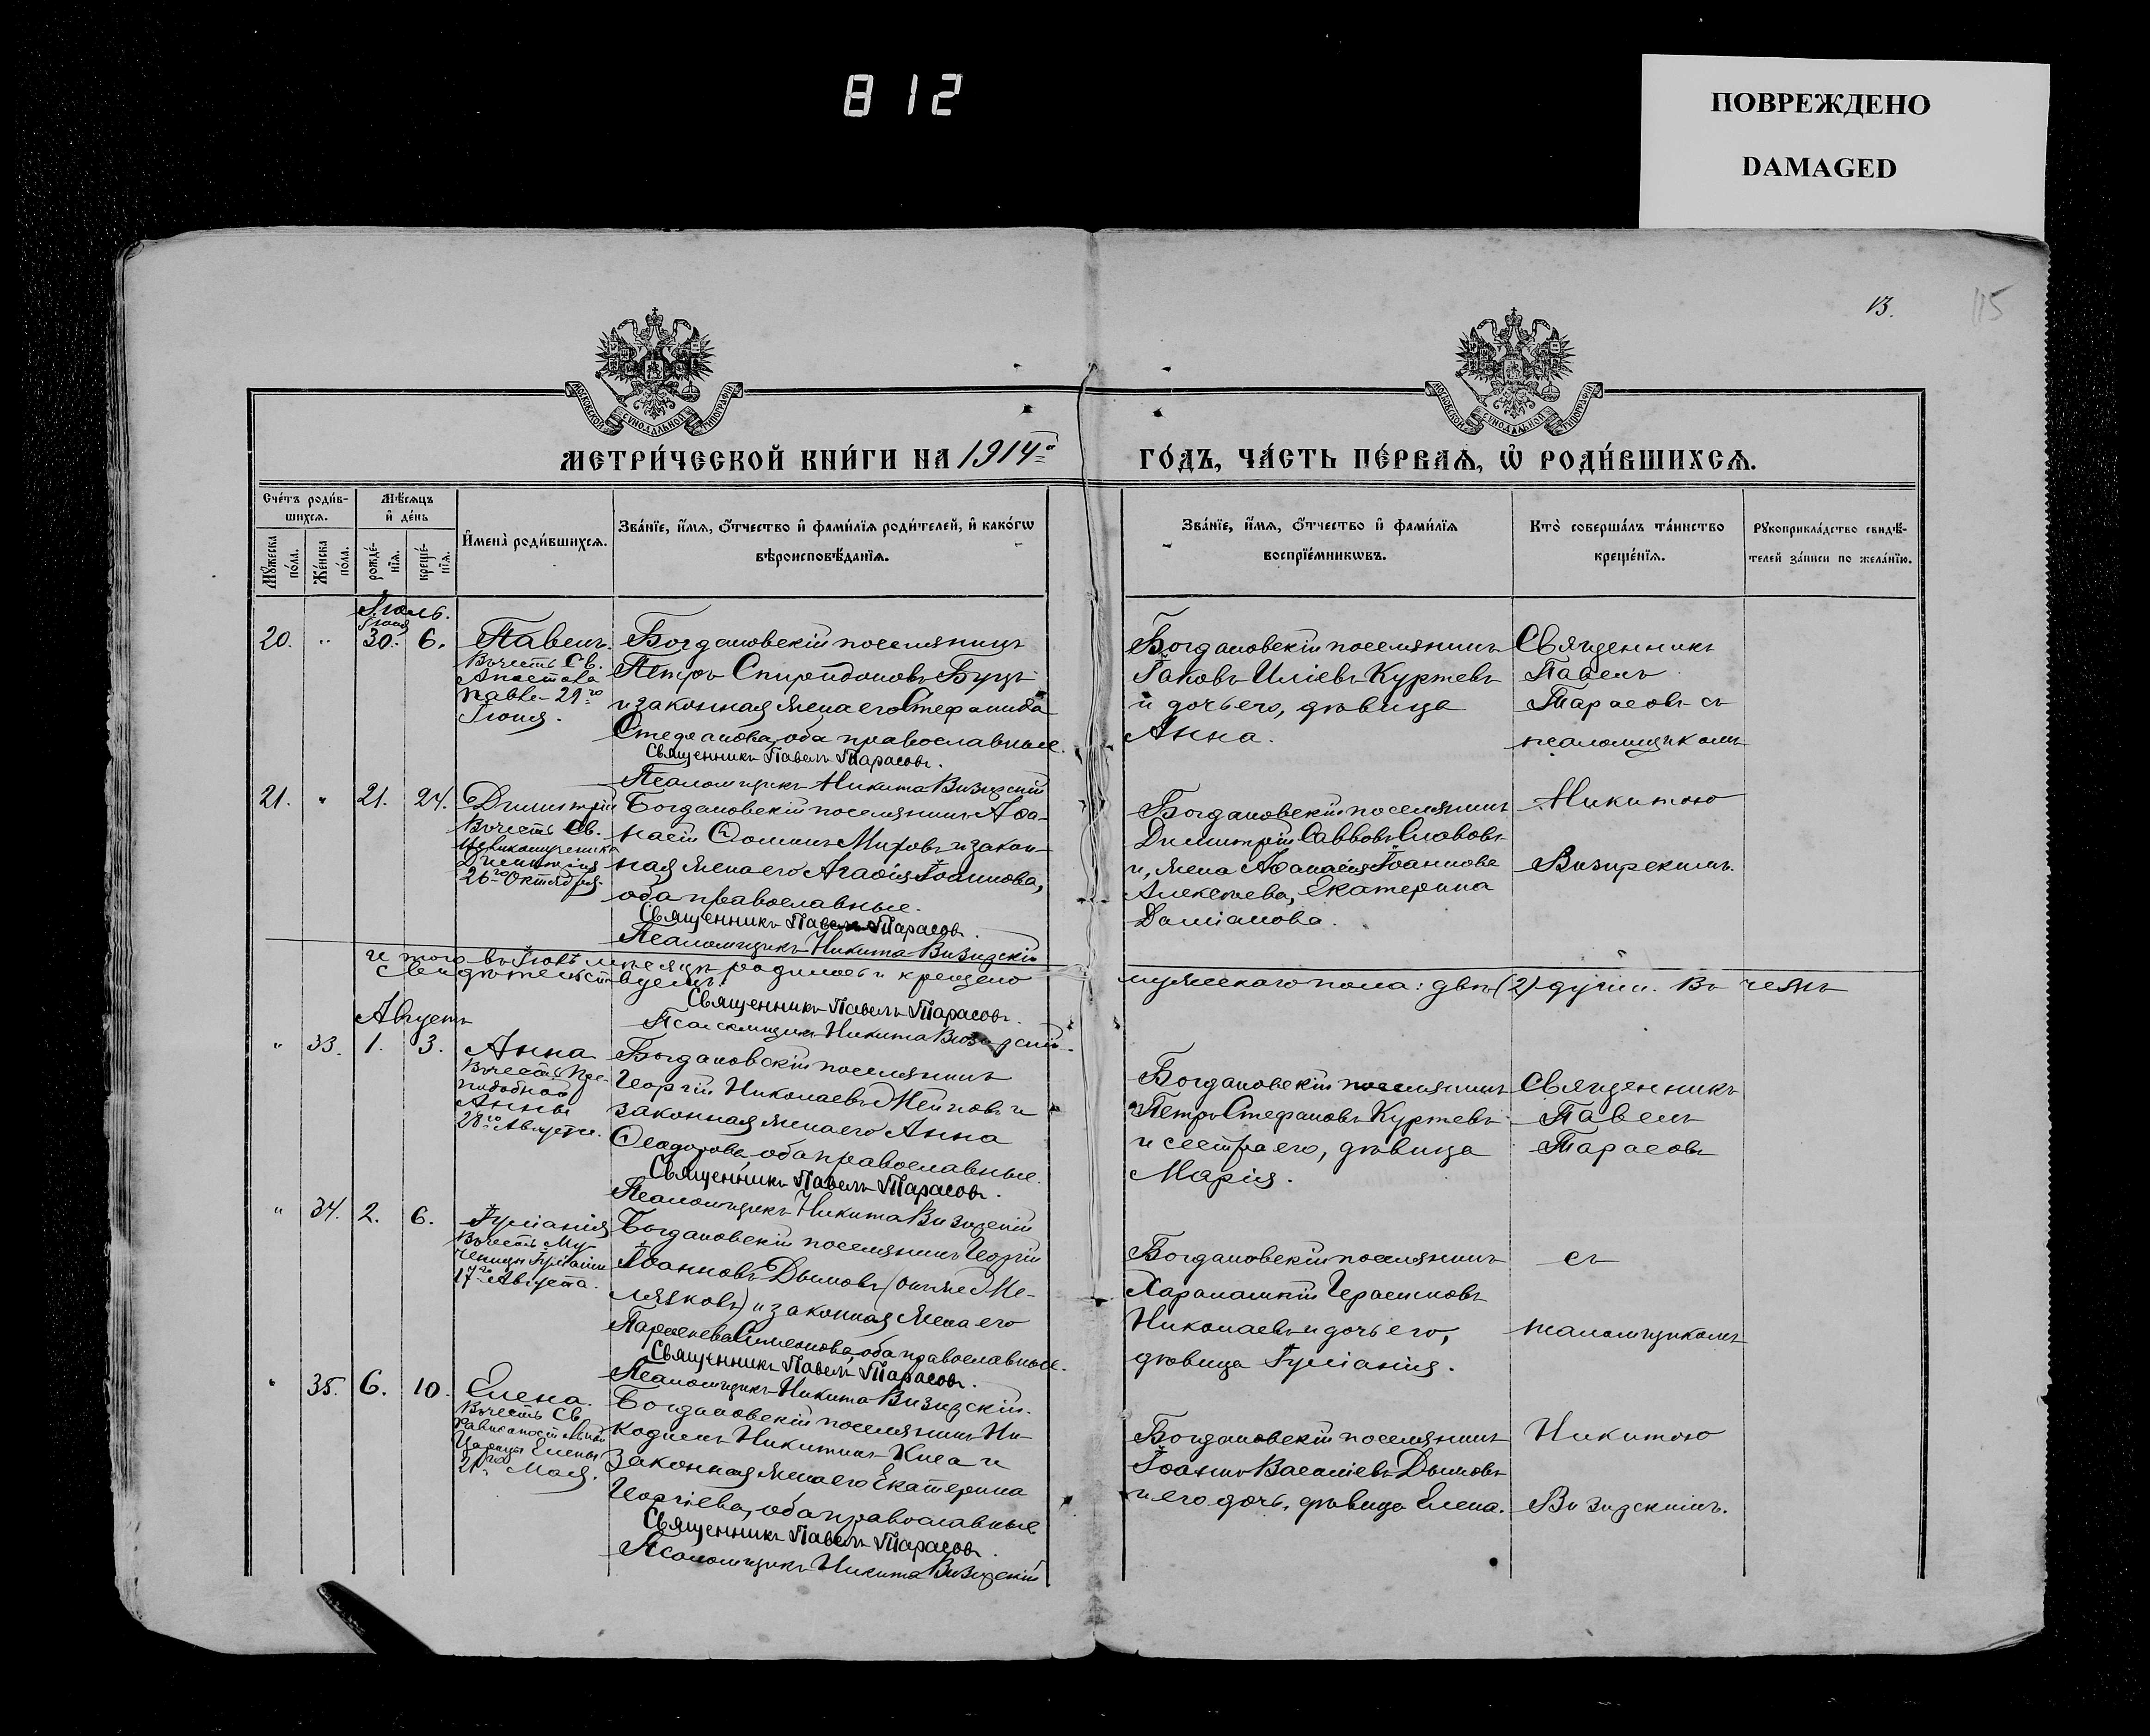 812
ПОВРЕЖДЕНО
DAMAGED
13.
115
МОСКОВСКОЙ СУНОДАЛЬНОЙ ТИПОГРАФІИ
МОСКОВСКОЙ СУНОДАЛЬНОЙ ТИПОГРАФІИ
МЕТРИ́ЧЕСКОЙ КНИ́ГИ НА 1914го ГО́ДЪ, ЧА́СТЬ ПЕ́РВАѦ, Ѽ РОДИ́ВШИХСѦ.
Сче́тъ роди́в-
шихсѧ.
Мѣ́сѧцъ
и҆ де́нь
Мꙋ́жеска
по́ла.
Же́нска
по́ла.
рожде́-
нїѧ.
креще́-
нїѧ.
И҆мена̀ роди́вшихсѧ.
Зва́нїе, и҆́мѧ, ѻ҆́тчество и҆ фами́лїѧ роди́телей, и҆ како́гѡ
вѣроисповѣ́данїѧ.
Зва́нїе, и҆́мѧ, ѻ҆́тчество и҆ фами́лїѧ
воспрїе́мникѡвъ.
Кто̀ соверша́лъ та́инство
креще́нїѧ.
Рꙋкоприкла́дство свидѣ́-
телей за́писи по жела́нїю.
Іюль.
Іюня
20. " 30. 6. Павелъ.
Въ честь Св.
Апостола
Павла 29го
Іюня.
Богдановскій поселянинъ
Петръ Спиридоновъ Бурд
и законная жена его Стефанида
Стефанова, оба православные.
Священникъ Павелъ Тарасовъ.
Псаломщикъ Никита Визирскій
Богдановскій поселянинъ
Іаковъ Иліевъ Куртевъ
и дочь его, дѣвица
Анна.
Священникъ
Павелъ
Тарасовъ съ
псаломщикомъ
21. " 21. 24. Димитрій
Въ честь Св.
Великомученика
Димитрія
26го Октября.
Богдановскій поселянинъ Аѳа-
насій Ѳоминъ Митовъ и закон-
ная жена его Агаѳія Іоаннова,
оба православные.
Священникъ Павелъ Тарасовъ.
Псаломщикъ Никита Визирскій
Богдановскій поселянинъ
Димитрій Саввовъ Славовъ
и, жена Аѳанасія Іоаннова
Алексѣева, Екатерина
Даміанова.
Никитою
Визирскимъ.
Итого въ Іюлѣ мѣсяцѣ родилось и крещено мужескаго пола: двѣ (2) души. Въ чемъ
свидѣтельствуемъ:
Священникъ Павелъ Тарасовъ.
Псаломщикъ Никита Визирскій.
Августъ
" 33. 1. 3. Анна
Въ честь Пре-
подобной
Анны
28го Августа.
Богдановскій поселянинъ
Георгій Николаевъ Мейновъ и
законная жена его Анна
Ѳеодорова, оба православные.
Священникъ Павелъ Тарасовъ.
Псаломщикъ Никита Визирскій
Богдановскій поселянинъ
Петръ Стефановъ Куртевъ
и сестра его, дѣвица
Марія.
Священникъ
Павелъ
Тарасовъ
" 34. 2. 6. Іуліанія
Въ честь Му-
ченицы Іуліаніи
17го Августа.
Богдановскій поселянинъ Георгій
Іоанновъ Дымовъ (онъ же Ме-
лязковъ) и законная жена его
Парѳенева Симеонова, оба православные.
Священникъ Павелъ Тарасовъ.
Псаломщикъ Никита Визирскій.
Богдановскій поселянинъ
Харалампій Герасимовъ
Николаевъ и дочь его,
дѣвица Іуліанія.
съ
псаломщикомъ
" 35. 6. 10. Елена.
Въ честь Св.
равноапостольной
Царицы Елены
21го Мая.
Богдановскій поселянинъ Ни-
кодимъ Никитинъ Киса и
законная жена его Екатерина
Георгіева, оба православные
Священникъ Павелъ Тарасовъ.
Псаломщикъ Никита Визирскій
Богдановскій поселянинъ
Іоаннъ Василіевъ Дымовъ
и его дочь, дѣвица Елена.
Никитою
Визирскимъ.